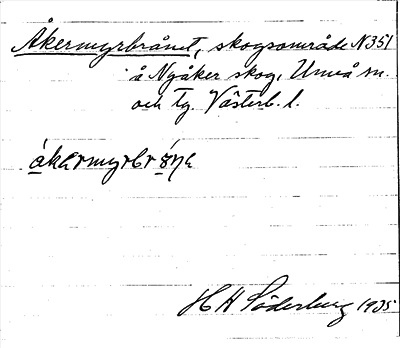 Åkermyrbrånet, skogsområde N351
å Nyåker skog, Umeå sn.
och tg. Västerb. l.
åkermyrbrånɐ
H H Söderberg 1935